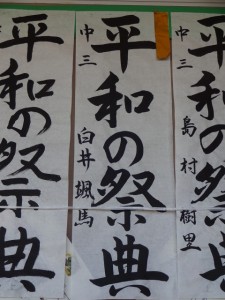 平和の祭典
中三 島村樹里
平和の祭典
中三 白井颯馬
平和の祭典